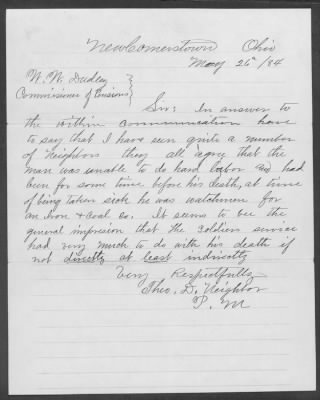 NewComerstown Ohio
May 26th/84
W. W. Dudley
Commissioner of Pensions
Sir: In answer to
the within communication have
to say that I have seen quite a number
of neighbors they all agree that the
man was unable to do hard labor and had
been for some time before his death, at time
of being taken sick he was watchman for
an Iron & coal co. It seems to be the
general impression that the soldiers service
had very much to do with his death if
not directly at least indirectly
Very Respectfully
Theo. D. Neighbor
P. M